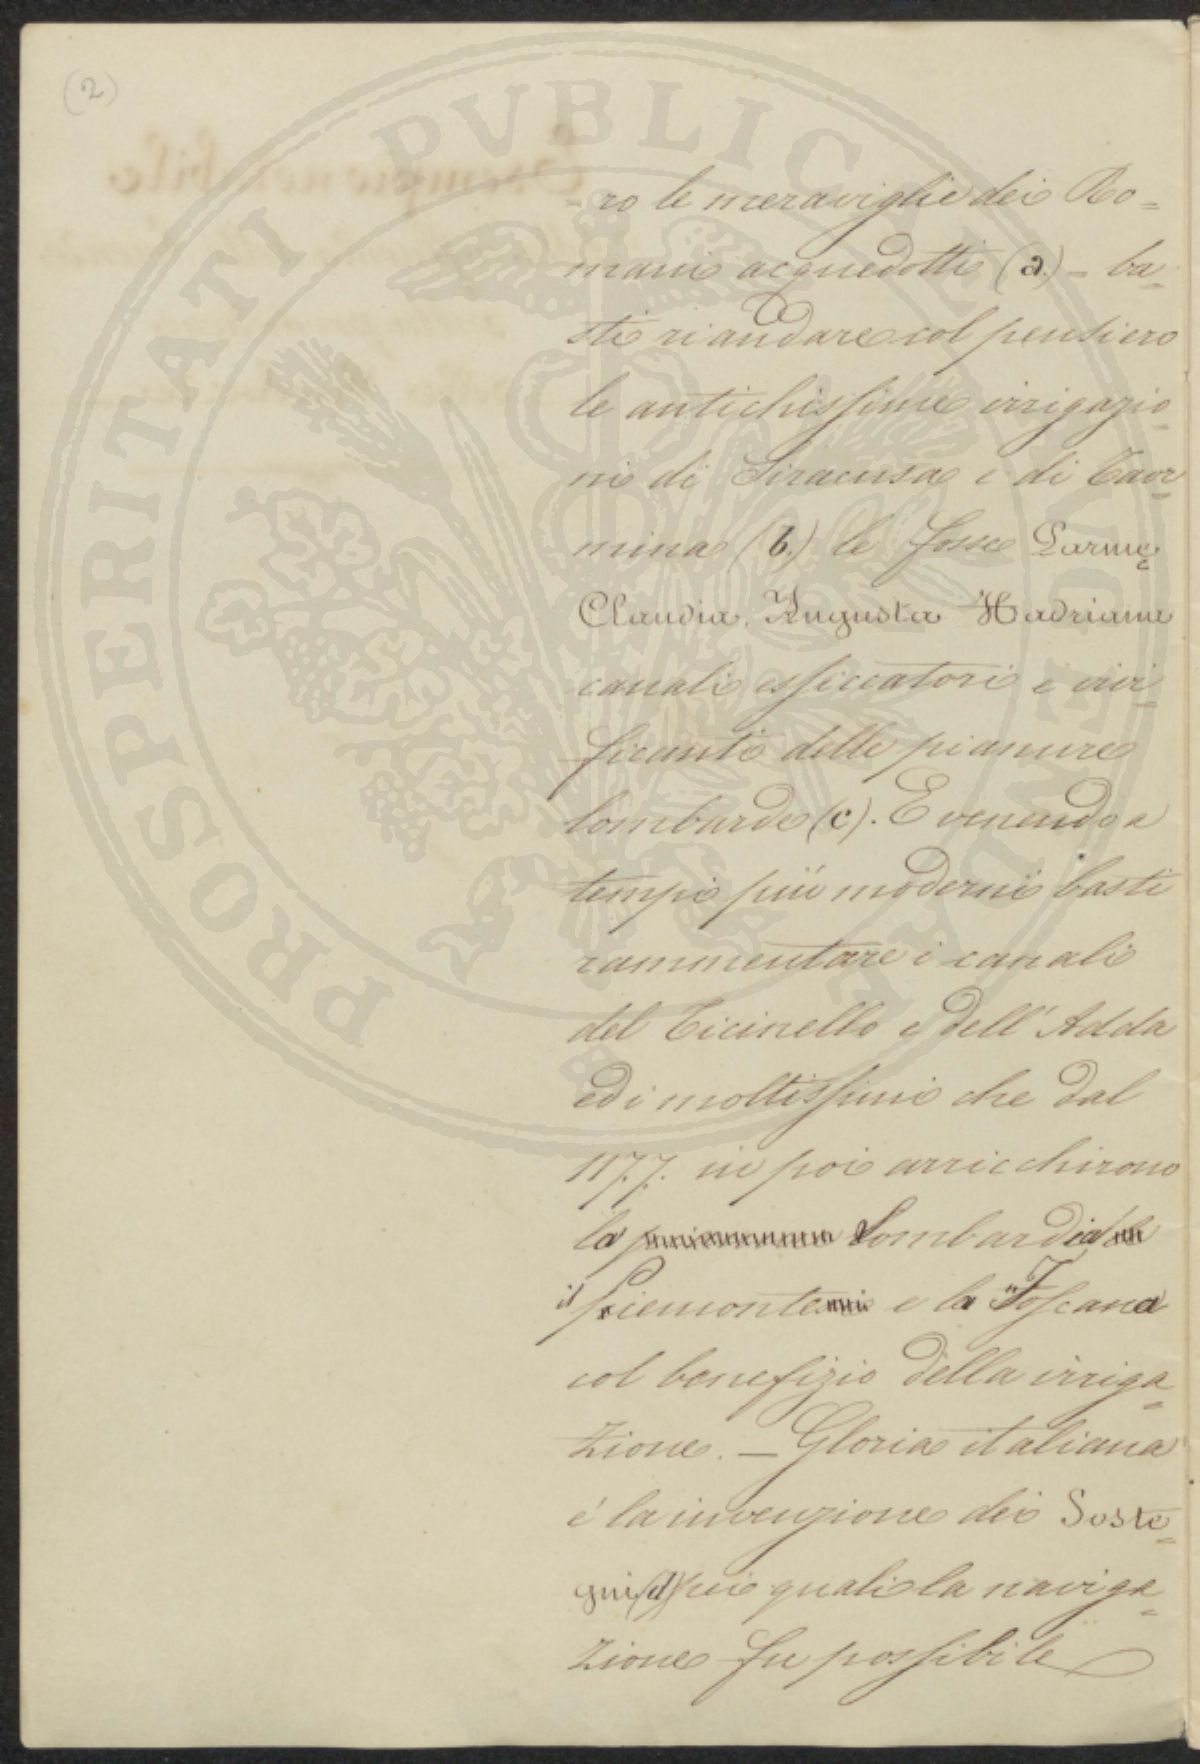 (2)
PROSPERITATI PVBLICAE
- ro le meraviglie dei Ro=
mani acquedotti (a.) - ba=
sti riandare col pensiero
le antichissime irrigazio=
ni di Siracusa e di Taor=
mina (b.) le fosse Parme,
Claudia, Augusta Hadriana
canali essiccatori e vivi=
ficanti delle pianure
lombarde (c). E venendo a
tempi più moderni basti
rammentare i canali
del Ticinello e dell'Adda
ed i moltissimi che dal
1177. in poi arricchirono
la Lombardia
il Piemonte e la Toscana
col benefizio della irriga=
zione. — Gloria italiana
é la invenzione dei Soste=
gni (d) pei quali la naviga=
zione fu possibile